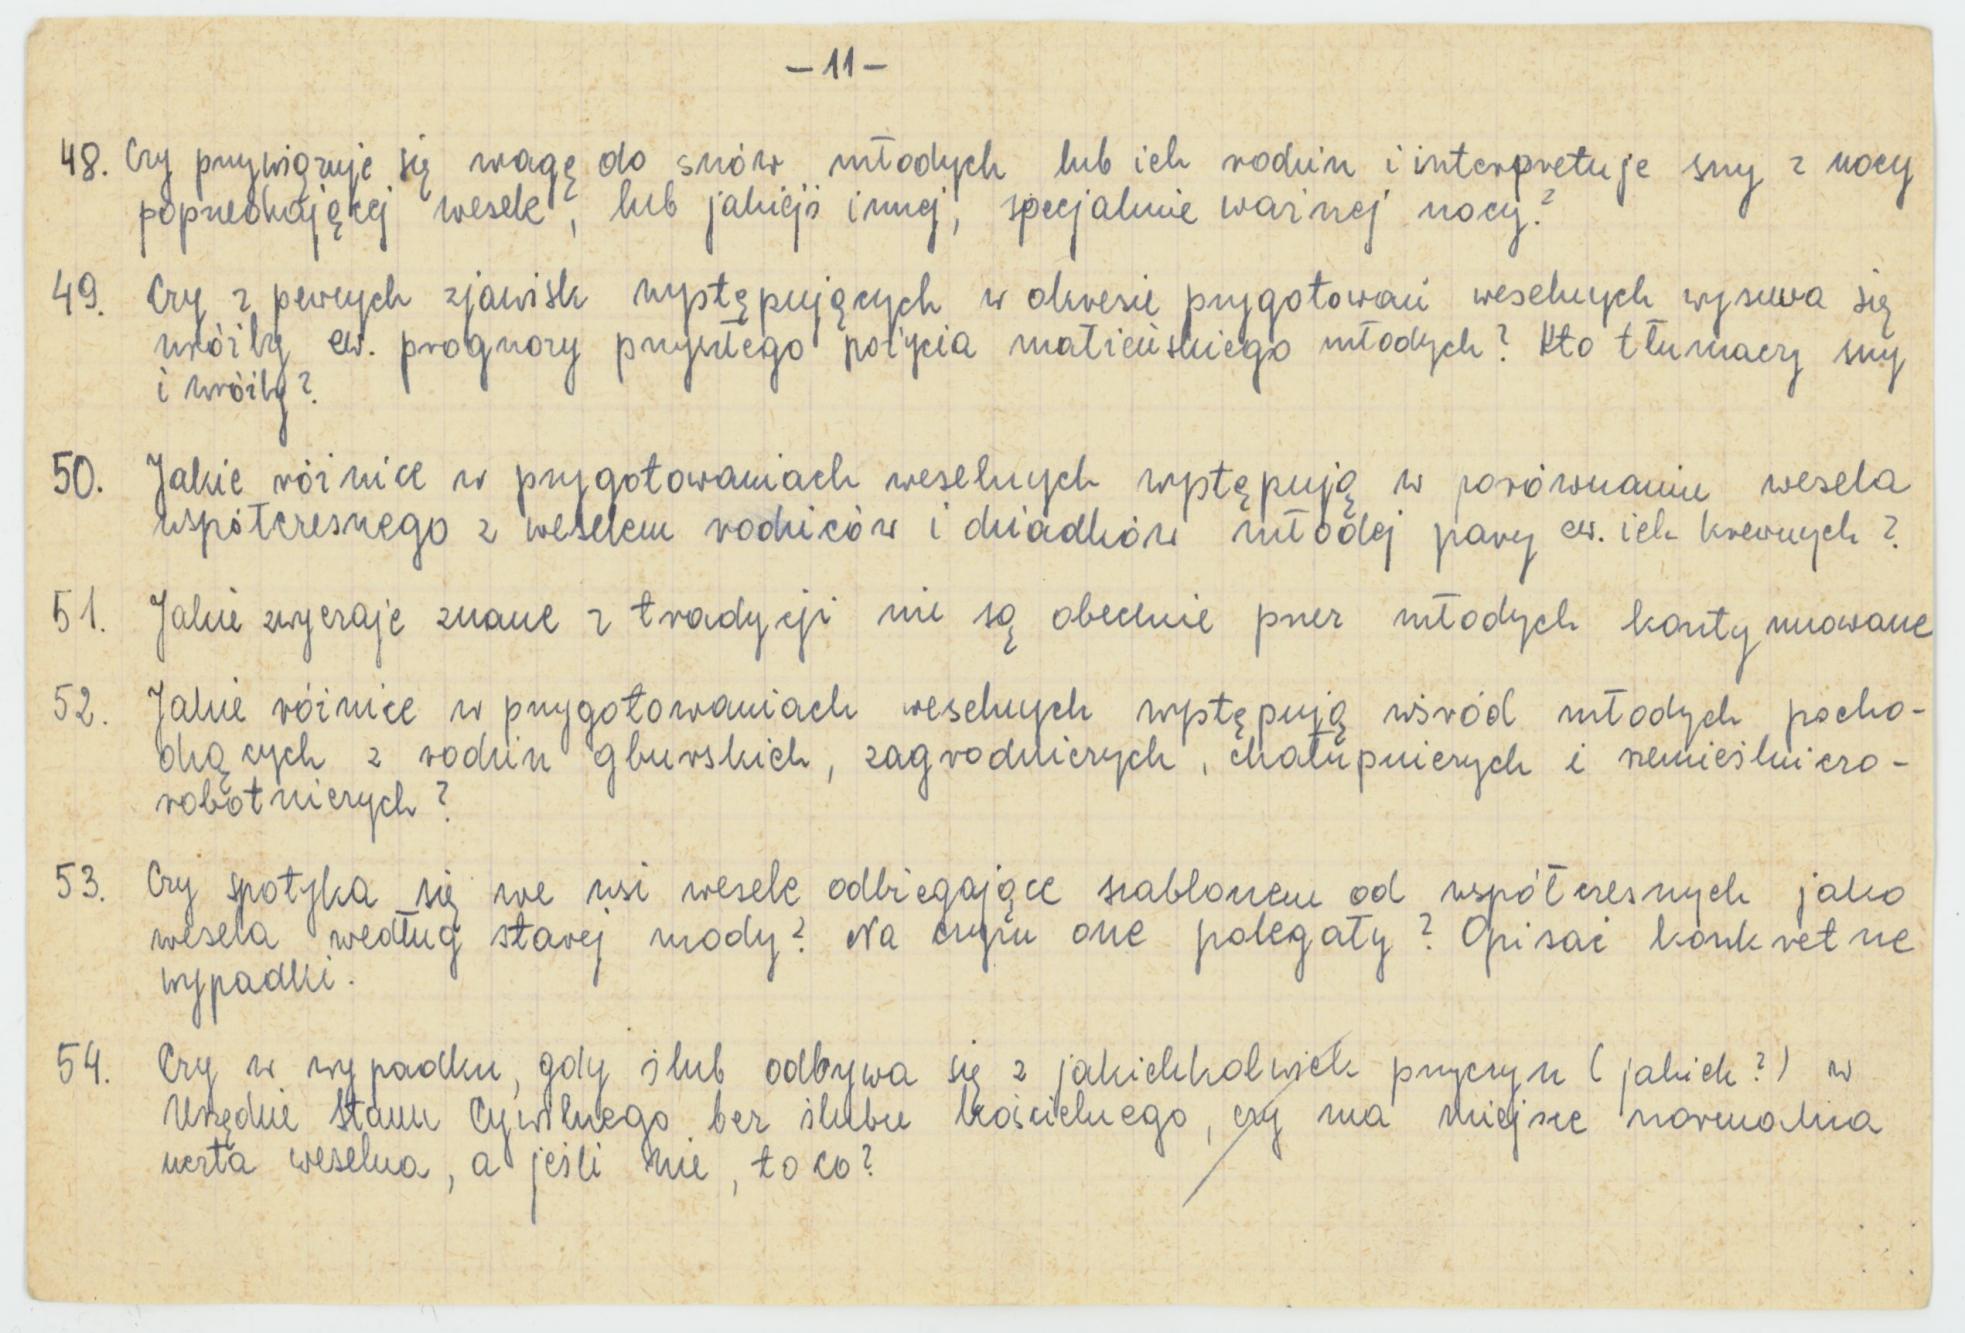 – 11 –
48. Czy przywiązuje się wagę do snów młodych lub ich rodzin i interpretuje sny z nocy
poprzedzającej wesele, lub jakiejś innej, specjalnie ważnej nocy?
49. Czy z pewnych zjawisk występujących w okresie przygotowań weselnych wysuwa się
wróżby ew. prognozy przyszłego pożycia małżeńskiego młodych? Kto tłumaczy sny
i wróżby?
50. Jakie różnice w przygotowaniach weselnych występują w porównaniu wesela
współczesnego z weselem rodziców i dziadków młodej pary ew. ich krewnych?
51. Jakie zwyczaje znane z tradycji nie są obecnie przez młodych kontynuowane
52. Jakie różnice w przygotowaniach weselnych występują wśród młodych pocho-
dzących z rodzin gburskich, zagrodniczych, chałupniczych i rzemieślniczo-
robotniczych?
53. Czy spotyka się we wsi wesele odbiegające szablonem od współczesnych jako
wesela według starej mody? Na czym one polegały? Opisać konkretne
wypadki.
54. Czy w wypadku, gdy ślub odbywa się z jakichkolwiek przyczyn (jakich?) w
Urzędzie Stanu Cywilnego bez ślubu kościelnego, czy ma miejsce normalna
uczta weselna, a jeśli nie, to co?